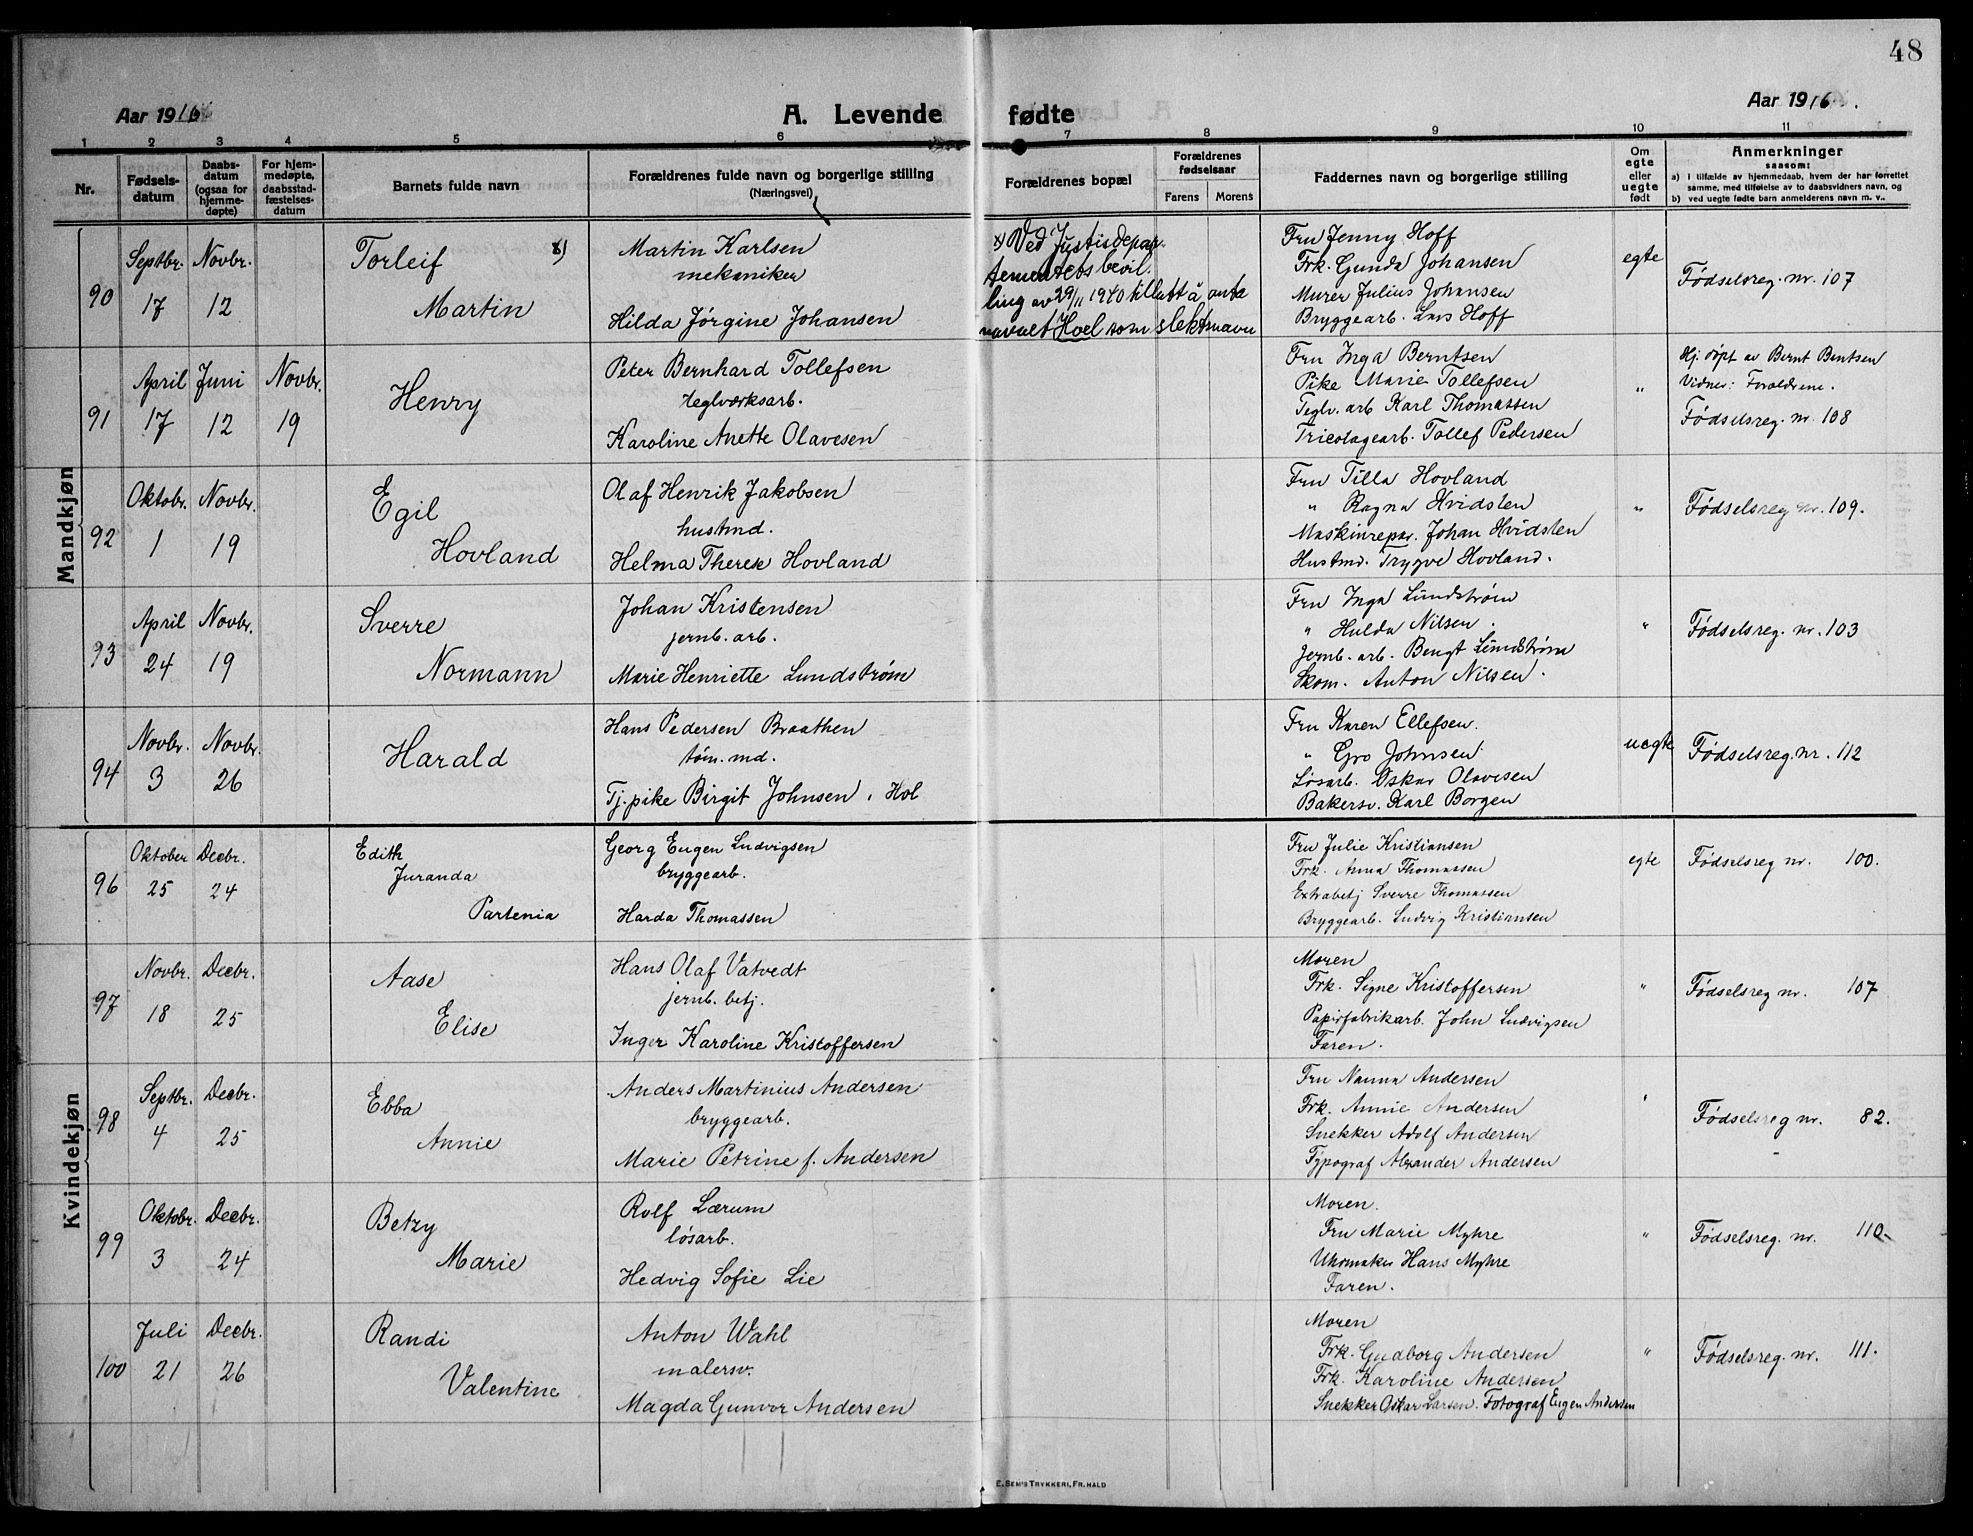 48
Aar 1916
A. Levende
fødte
Aar 1916.
1 2 3 4 5 6 7 8 9 10 11
Nr.
Fødsels-
datum
Daabs-
datum
(ogsaa for
hjemme-
døpte)
For hjem-
medøpte,
daabsstad-
fæstelses-
datum
Barnets fulde navn
Forældrenes fulde navn og borgerlige stilling
(Næringsvei)
Forældrenes bopæl
Forældrenes
fødselsaar
Farens
Morens
Faddernes navn og borgerlige stilling
Om
egte
eller
uegte
født
Anmerkninger
saasom:
a) I tilfælde av hjemmedaab, hvem der har forrettet
samme, med tilføielse av to daabsvidners navn, og
b) ved uegte fødte barn anmelderens navn m. v..
Mandkjøn
90
Septbr.
17
Novbr.
12
Torleif x)
Martin
Martin Karlsen
mekaniker
Hilda Jörgine Johansen
x) Ved Justisdepar-
tementets bevil-
ling av 29/11 1940 tillatt å anta
navnet Hoel som slektsnavn
Fru Jenny Hoff
Frk. Gunda Johansen
Murer Julius Johansen
Bryggearb. Lars Hoff
egte
Fødselsreg. nr. 107
91
April
17
Juni
12
Novbr.
19
Henry
Peter Bernhard Tollefsen
teglverksarb.
Karoline Anette Olavesen
Fru Inga Berntsen
Pike Marie Tollefsen
Teglv. arb Karl Thomassen
Tricotagearb. Tollef Pedersen
"
Hj. døpt av Bernt Bentsen
Vidner: Forældrene.
Fødselsreg. nr. 108
92
Oktobr.
1
Novbr.
19
Egil
Hovland
Olaf Henrik Jakobsen
hustmd.
Helma Therese Hovland
Fru Tilla Hovland
" Ragna Hvidsten
Maskinrepar. Johan Hvidsten
Hustmd. Trygve Hovland.
"
Fødselsreg nr. 109.
93
April
24
Novbr.
19
Sverre
Normann
Johan Kristensen
jernb. arb.
Marie Henriette Lundstrøm
Fru Inga Lundstrøm
" Hulda Nilsen.
Jernb. arb. Bengt Lundstrøm
Skom. Anton Nilsen.
"
Fødselsreg. nr. 103
94
Novbr.
3
Novbr.
26
Harald
Hans Pedersen Braathen
tøm. md.
Tj. pike Birgit Johnsen, Hol
Fru Karen Ellefsen.
" Gro Johnsen
Løsarb. Oskar Olavesen
Bakersv. Karl Borgen
uegte
Fødselsreg. nr. 112
Kvindekjøn
96
Oktober
25
Decbr.
24
Edith
Juranda
Partenia
Georg Eugen Ludvigsen
bryggearb.
Harda Thomassen
Fru Julie Kristiansen
Frk. Anna Thomassen
Extrabetj Sverre Thomassen
Bryggearb. Ludvig Kristiansen
egte
Fødselsreg nr. 100.
97
Novbr.
18
Decbr.
25
Aase
Elise
Hans Olaf Vatvedt
jernb. betj.
Inger Karoline Kristoffersen
Moren
Frk. Signe Kristoffersen
Papirfabrikarb. John Ludvigsen
Faren.
"
Fødselsreg nr. 107
98
Septbr.
4
Decbr.
25
Ebba
Annie
Anders Martinius Andersen
bryggearb.
Marie Petrine f. Andersen
Fru Nanna Andersen
Frk. Annie Andersen
Snekker Adolf Andersen
Typograf Alexander Andersen
"
Fødselsreg nr. 82.
99
Oktobr.
3
Decbr.
24
Betzy
Marie
Rolf Lærum
løsarb.
Hedvig Sofie Lie
Moren.
Fru Marie Myhre
Uhrmaker Hans Myhre
Faren.
"
Fødselsreg. nr. 110.
100
Juli
21
Decbr.
26
Randi
Valentine
Anton Wahl
malersv.
Magda Gunvor Andersen
Moren
Frk. Gudborg Andersen
Frk. Karoline Andersen
Snekker Oskar Larsen. Fotograf Eugen Andersen
"
Fødselsreg. nr. 111.
E. SEM'S TRYKKERI, FR.HALD